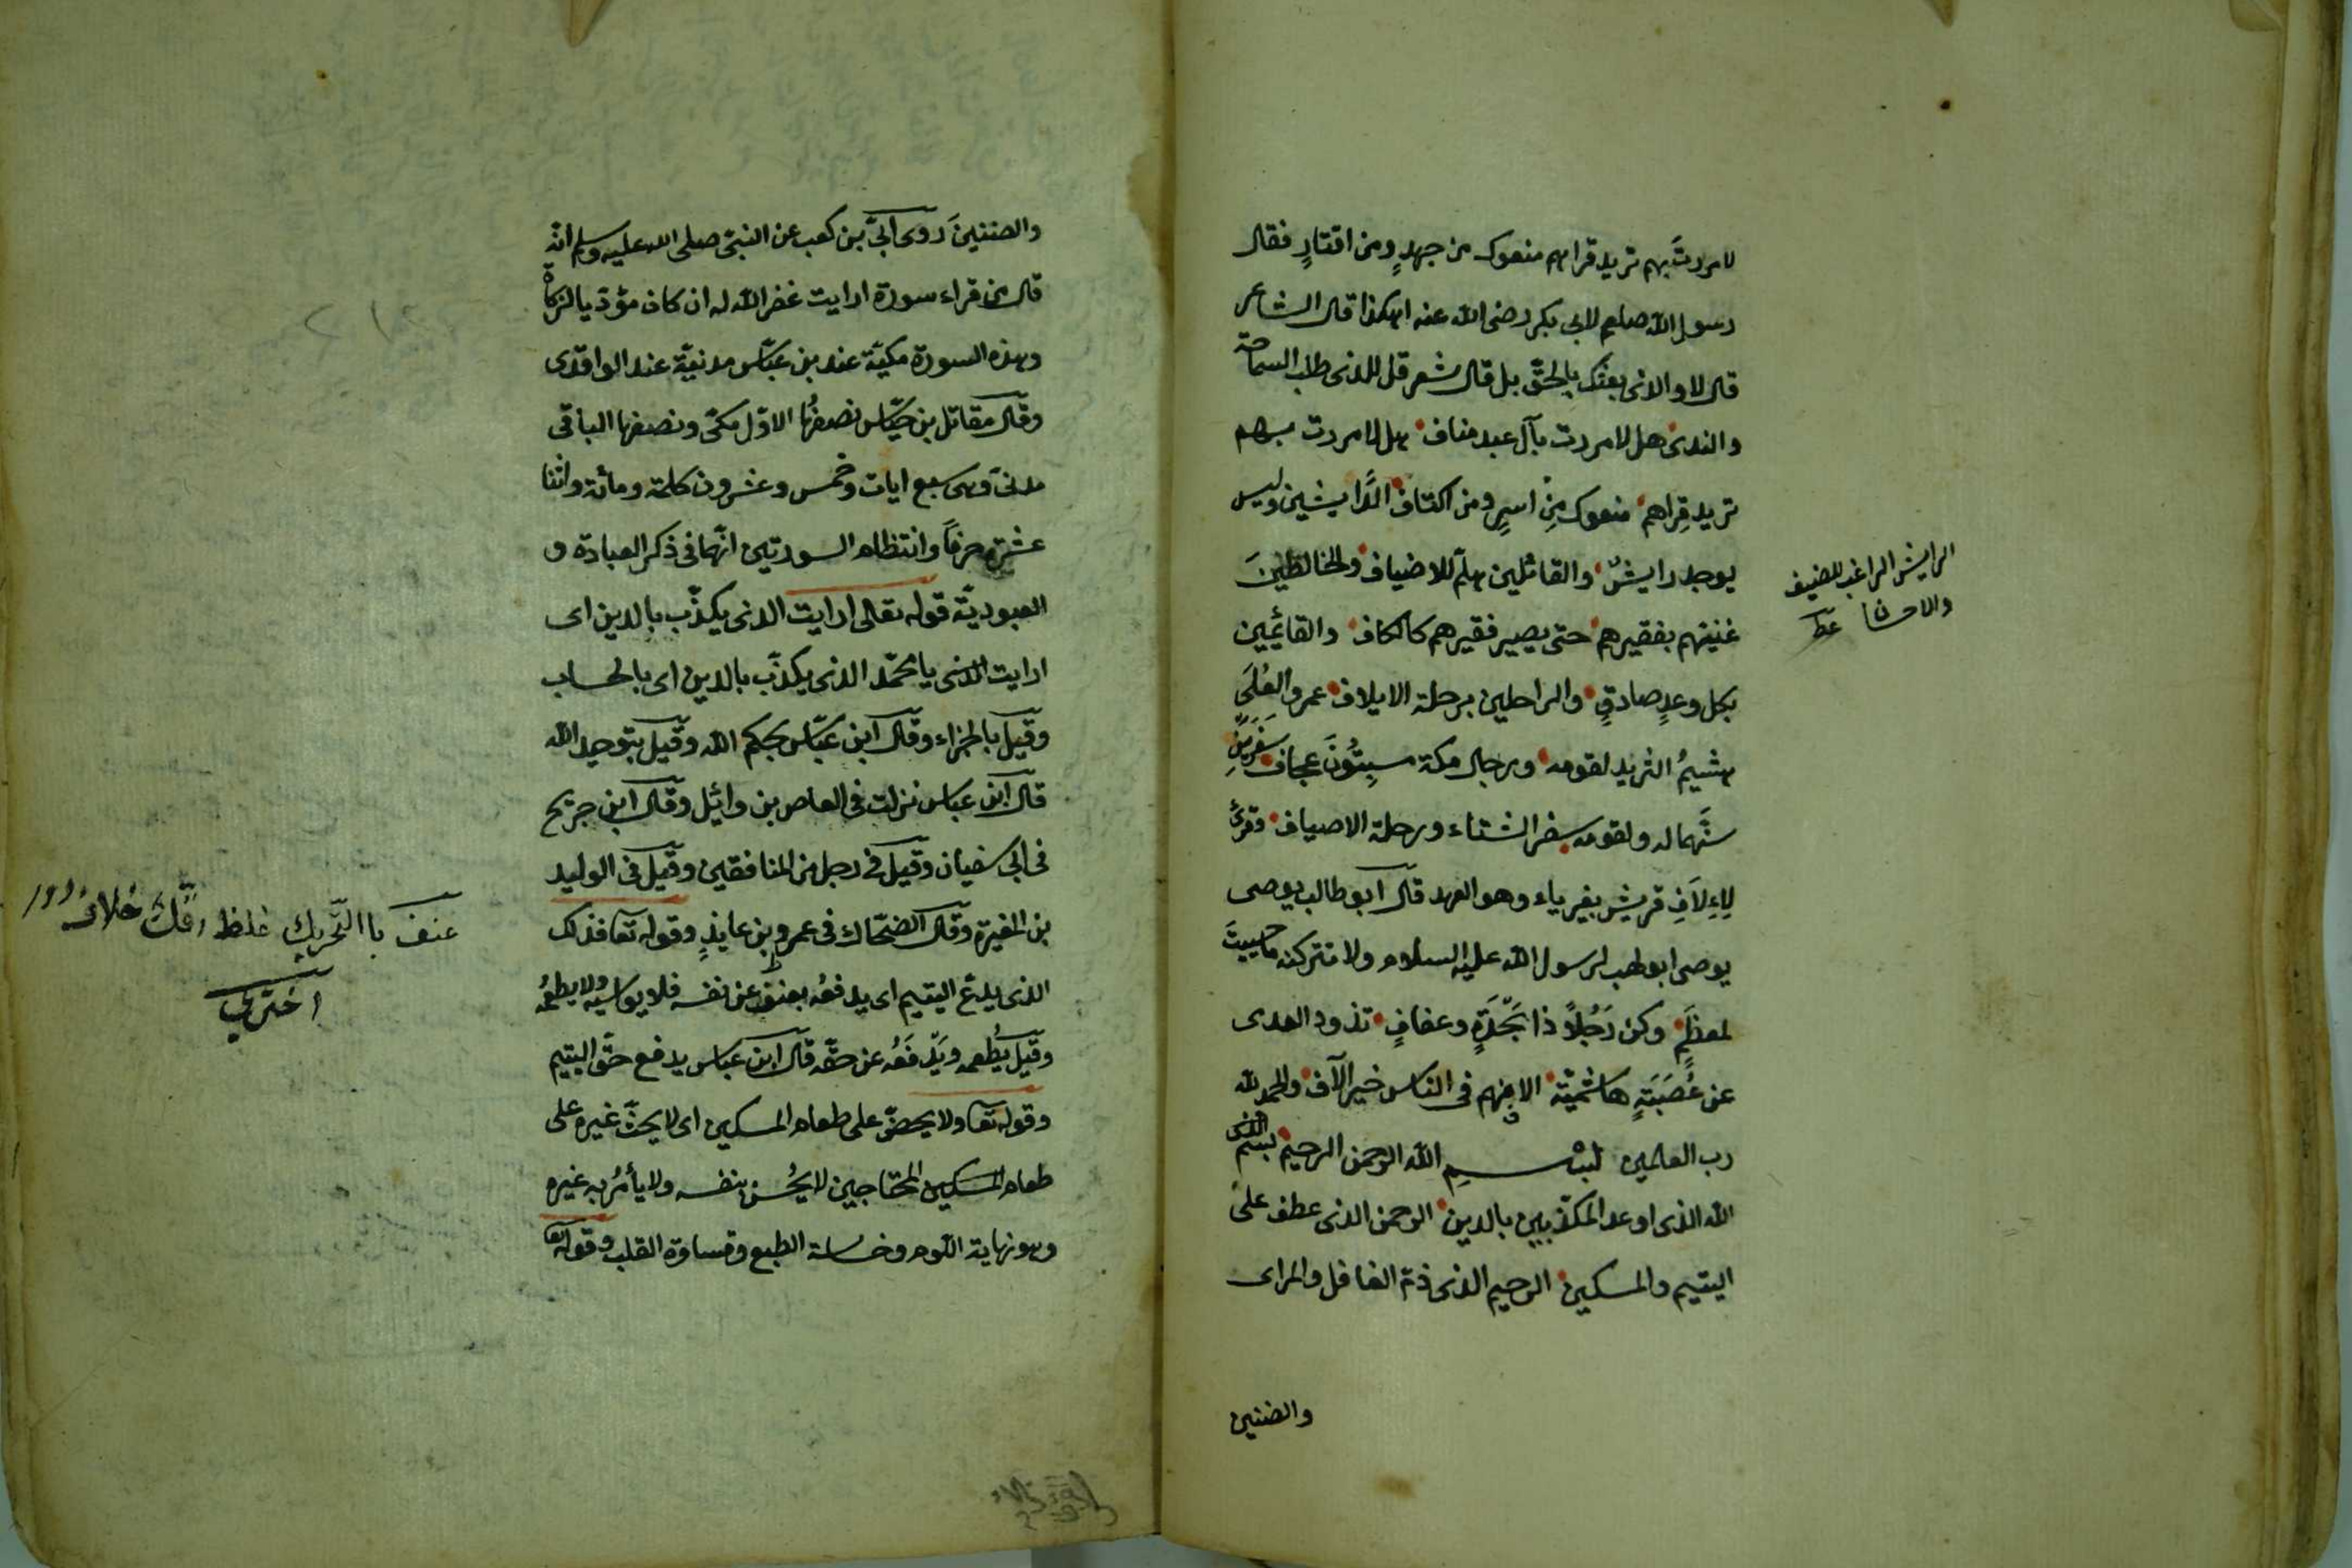 لامررتَ بهم تريد قراهم منعوك من جهدٍ ومن اقتارٍ فقال
رسول الله صلعم لابى بكر رضى الله عنه اهكذا قال الشاعر
قال لا والذى بعثك بالحقّ بل قال شعر قل للذى طلب السماحة
والندى هل لا مررت بآل عبد مناف هل لا مررت بهم
تريد قِراهم منعوك مِنْ اسرٍ ومن اكتاف الرَّايشين وليس
يوجد رايشٌ والقائلين هلمّ للاضياف والخالطينَ
غنيّهم بفقيرهم حتى يصير فقيرهم كالكاف والقائمين
بكل وعدٍ صادقٍ والراحلين برحلة الايلاف عمرو العُلَى
هشيمُ الثريد لقومه ورجال مكة مسنِتُونَ عجاف سَفَرَيْنِ
سنَّهما له ولقومه سفر الشتاء ورحلة الاصياف وقرئ
لاِءِلَافِ قريش بغير ياء وهو العهد قال ابو طالب يوصى
يوصى ابو لهب لرسول الله عليه السلام ولا تتركنه ما حييتَ
لمعظَمٍ وكن رَجُلاً ذا نَجْدَةٍ وعفافٍ تذود العدى
عن عُصَبَتةٍ هاشميّة الافهم فى الناس خير الآف والحمد لله
رب العالمين بسـم الله الرحمن الرحيم بسم
الله الذى اوعد المكذّبين بالدين الرحمن الذى عطف على
اليتيم والمسكين الرحيم الذى ذمّ الغافل والمراى
والضنين
الرايش الراغب للضيف
والاحسان
والضنينَ روى ابىّ بن كعب عن النبىّ صلى الله عليه وسلم انّه
قال من قراء سورة ارايت غفر الله له ان كان مؤدّيا للزكاة
وهذه السورة مكيّة عند بن عبّاس مدنيّة عند الواقدى
وقال مقاتل بن حيّاس نصفُها الاوّل مكىّ ونصفها الباقى
مدنىّ وهى سبع ايات وخمس وعشرون كلمة ومأئة واثنا
عشرة حرفاً وانتظام السورتين انّهما فى ذكر العبادة و
العبوديّة قوله تعالى ارايت الذى يكذّب بالدين اى
ارايت الذى يا محمّد الذى يكذّب بالدين اى بالحساب
وقيل بالجزاء وقال ابن عبّاس بحكم الله وقيل بتوحيد الله
قال ابن عباس نزلت فى العاص بن وائل وقال ابن جريح
فى ابى سفيان وقيل فى رجل من المنافقين وقيل فى الوليد
بن المغيرة وقال الضحّاك فى عمرو بن عايذٍ وقوله تعا فذلك
الذى يدعّ اليتيم اى يدفعُه بعنف عن نفسه فلا يواسيه ولا يطعمُه
وقيل يُطعمه ويَدْفَعُه عن حقّه قال ابن عباس يدفع حقّ اليتيم
وقوله تعا ولا يحضّ على طعام المسكين اى لا يحثّ غيره على
طعام المسكين المحتاجين لا يُحسن بنفسه ولا يأمُر به غيره
وهو نهاية اللوم وخساسة الطبع وقساوة القلب وقوله تعا
عنف با التّحريك غلظ
اخترى